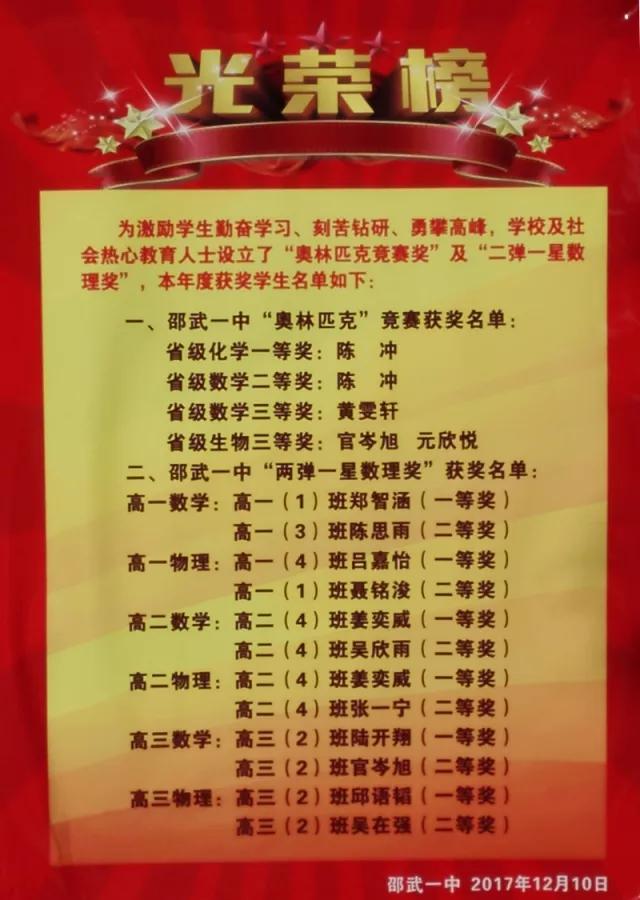 光荣榜
为激励学生勤奋学习、刻苦钻研、勇攀高峰，学校及社
会热心教育人士设立了“奥林匹克竞赛奖”及“二弹一星数
理奖”，本年度获奖学生名单如下：
一、邵武一中“奥林匹克”竞赛获奖名单：
省级化学一等奖：陈　冲
省级数学二等奖：陈　冲
省级数学三等奖：黄雯轩
省级生物三等奖：官岑旭　元欣悦
二、邵武一中“两弹一星数理奖”获奖名单：
高一数学：高一（1）班郑智涵（一等奖）
高一（3）班陈思雨（二等奖）
高一物理：高一（4）班吕嘉怡（一等奖）
高一（1）班聂铭浚（二等奖）
高二数学：高二（4）班姜奕威（一等奖）
高二（4）班吴欣雨（二等奖）
高二物理：高二（4）班姜奕威（一等奖）
高二（4）班张一宁（二等奖）
高三数学：高三（2）班陆开翔（一等奖）
高三（2）班官岑旭（二等奖）
高三物理：高三（2）班邱语韬（一等奖）
高三（2）班吴在强（二等奖）
邵武一中 2017年12月10日